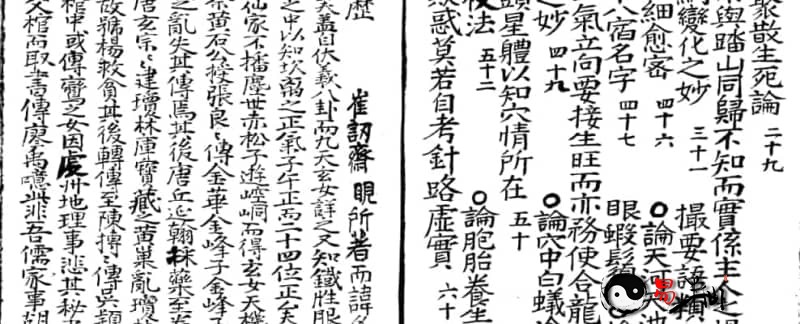 聚散生死論 二十九
與踏山同歸不知而實係生
變化之妙 三十一 撮要語類
細愈密 四十六 ○論天河天池
八宿名字 四十七 眼蝦鬚
氣立向要接生旺而亦務使合龍
之妙 四十九 ○論穴中白蟻
頭星體以知穴情所在 五十
法 五十二 ○論胞胎養生
惑莫若自考針路虛實 六十
歷 崔訒齋 眼所著而諱
天蓋自伏羲八卦而九天玄女詳之又知鐵性服
之中以知坎弱之正氣子午正而二十四位正
仙家不播塵世赤松子遊崆峒而得玄女天機
黃石公授張良〻傳金華金峰子金峰子
之亂失其傳焉其後唐丘延翰採藥至
唐玄宗〻建壇林庫寶藏之黃巢亂瓊
故號楊救貧其後轉傳至陳摶〻傳吳
棺中或傳齋之女因虔州地理事悲其秘
棺而取書傳廖禹噫此非吾儒家事